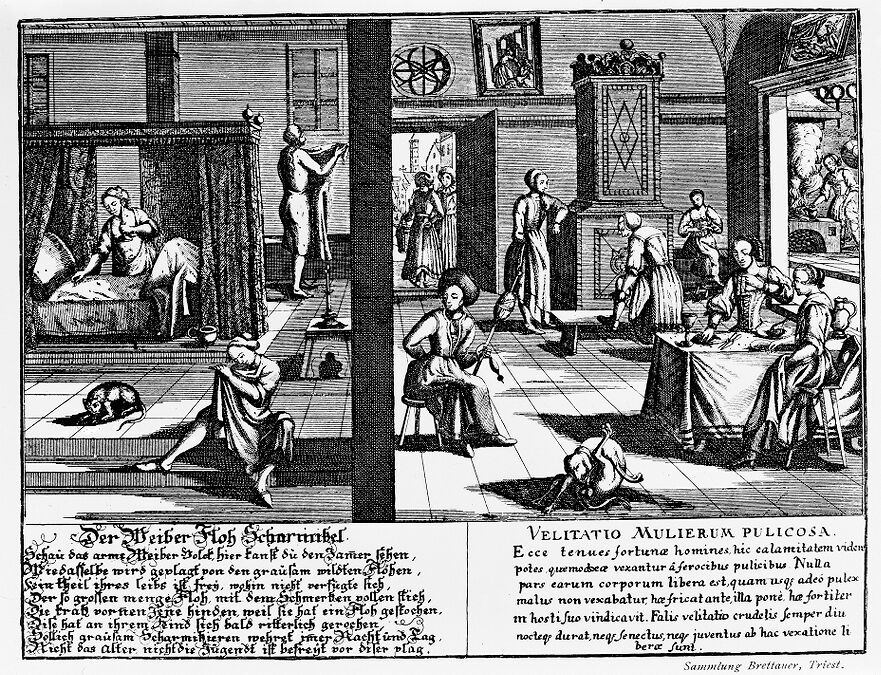 Der Weiber Floh Scharmützel.
Schau das arme Weiber Volck hier kanst du den Jamer sehen,
Wie dasselbe wird geplagt von den grausam wildten Flöhen,
Kein theil ihres leibs ist frey, wohin nicht verfügte sich,
Der so grossen menge Floh, mit dem Schmertzen vollen stich,
Die kratzt vorn hinden, weil sie hat ein Floh gestochen,
hat an ihrem Feind sich bald ritterlich gerochen,
Sollich grausam Scharmitzieren wehret imer Nacht und Tag,
Nicht das Alter nicht die Jugendt ist befreyt vor diser plag.
VELITATIO MULIERUM PULICOSA.
Ecce tenues fortunæ homines, hic calamitatem viden
potes, quemodoeæ vexantur á ferocibus pulicibus Nulla
pars earum corporum libera est, quam usq; adeò pulex
malus non vexabatur, hæ fricat ante, illa ponè, hæ fortiter
in hosti suo vindicavit. Falis velitatio crudelis semper diu
nocteq; durat, neq; senectus, neq; juventus ab hac vexatione li
beræ sunt.
Sammlung Brettauer, Triest.